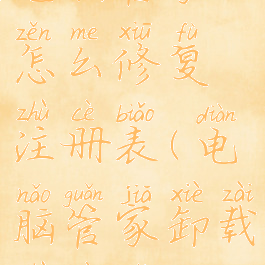 zěn me xiū fù
怎么修复
zhù cè biǎo diàn
注册表(电
nǎo guǎn jiā xiè zài
脑管家卸载